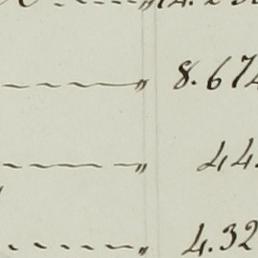 " 8.674
" 44.
" 4.32